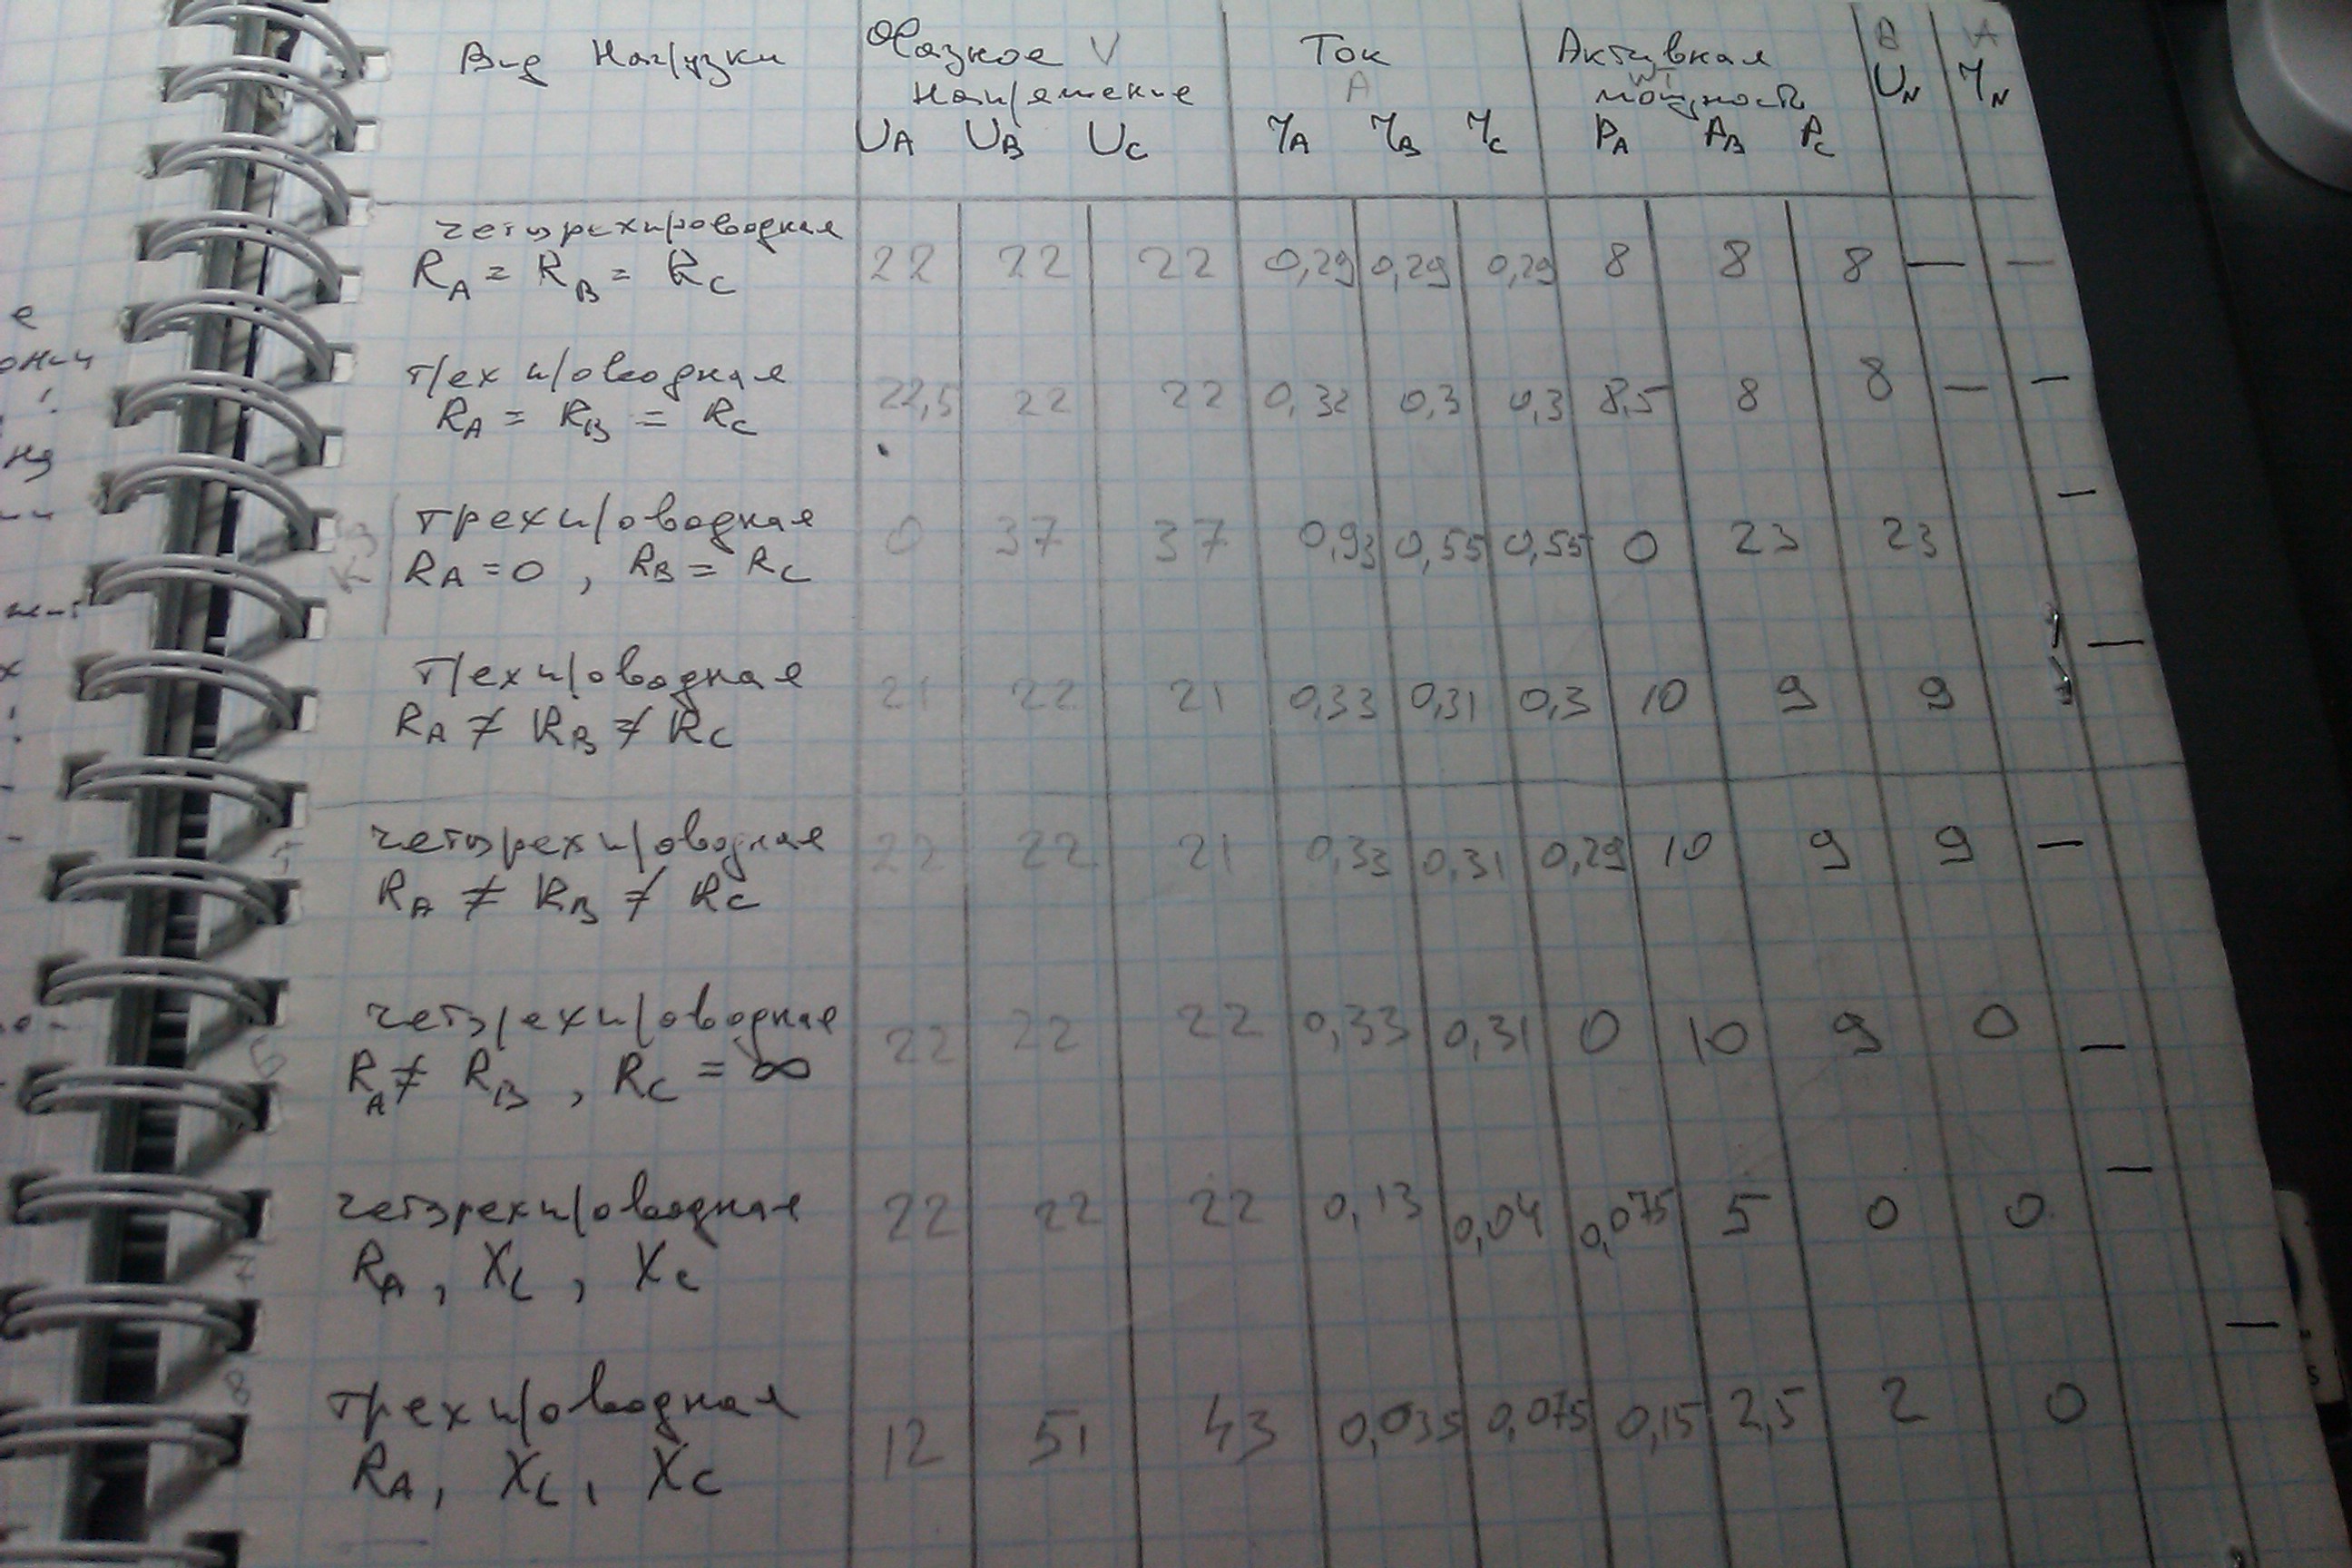 Вид Нагрузки Фазное V Ток Активная В А
Напряжение А Wт мощность U_N I_N
U_A U_B U_C I_A I_B I_C P_A P_B P_C
четырехпроводная
R_A = R_B = R_C 22 22 22 0,29 0,29 0,29 8 8 8 — —
трехпроводная
R_A = R_B = R_C 22,5 22 22 0,32 0,3 0,3 8,5 8 8 — —
КЗ трехпроводная
R_A = 0 , R_B = R_C 0 37 37 0,93 0,55 0,55 0 23 23 —
трехпроводная
R_A ≠ R_B ≠ R_C 21 22 21 0,33 0,31 0,3 10 9 9 —
5 четырехпроводная
R_A ≠ R_B ≠ R_C 22 22 21 0,33 0,31 0,29 10 9 9 —
6 четырехпроводная
R_A ≠ R_B , R_C = ∞ 22 22 22 0,33 0,31 0 10 9 0 —
7 четырехпроводная
R_A , X_L , X_C 22 22 22 0,13 0,04 0,075 5 0 0 —
8 трехпроводная
R_A , X_L , X_C 12 51 43 0,035 0,075 0,15 2,5 2 0 —